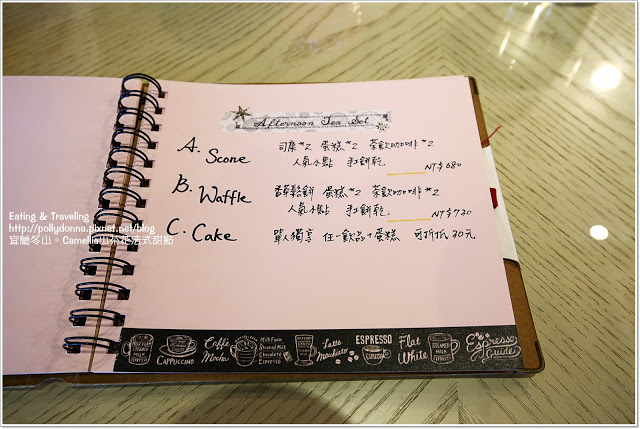 Afternoon Tea Set
A. Scone 司康*2 蛋糕*2 茶飲咖啡*2
人氣小點 手工餅乾 NT$680
B. Waffle 香草鬆餅 蛋糕*2 茶飲咖啡*2
人氣小點 手工餅乾 NT$730
C. Cake 單人獨享 任一飲品+蛋糕 可折抵30元
Eating & Traveling
http://pollydonna.pixnet.net/blog
宜蘭冬山。Camellia山茶花法式甜點
CAPPUCCINO
Caffé Mocha
Milk Foam
Steamed Milk
Chocolate
Espresso
Latte Macchiato
ESPRESSO
Flat White
STEAMED MILK
ESPRESSO
Espresso Guide